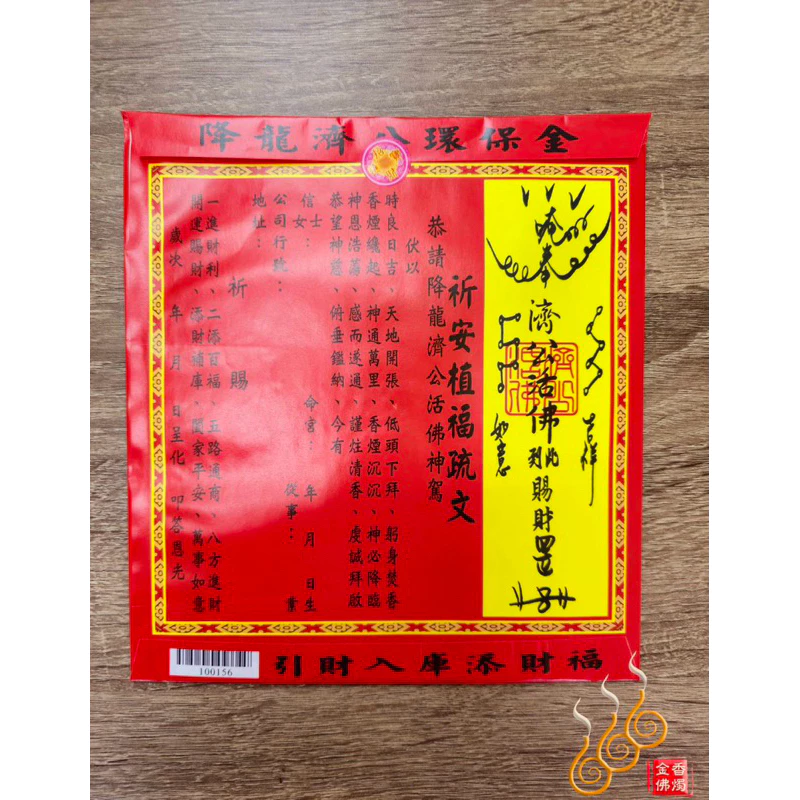 降龍濟公環保金
奉濟公活佛到此賜財
吉祥
如意
祈安植福疏文
恭請降龍濟公活佛神駕
伏以
時良日吉、天地開張、低頭下拜、躬身焚香
香煙纔起、神通萬里、香煙沉沉、神必降臨
神恩浩蕩、感而遂通、謹炷清香、虔誠拜啟
恭望神慈、俯垂鑑納、今有
信士女： 命宮： 年 月 日生
公司行號： 從事： 業
地址：
祈賜
一進財利、二添百福、五路通商、八方進財
開運賜財、添財補庫、闔家平安、萬事如意
歲次 年 月 日呈化 叩答恩光
100156
引財入庫添財福
金佛香燭